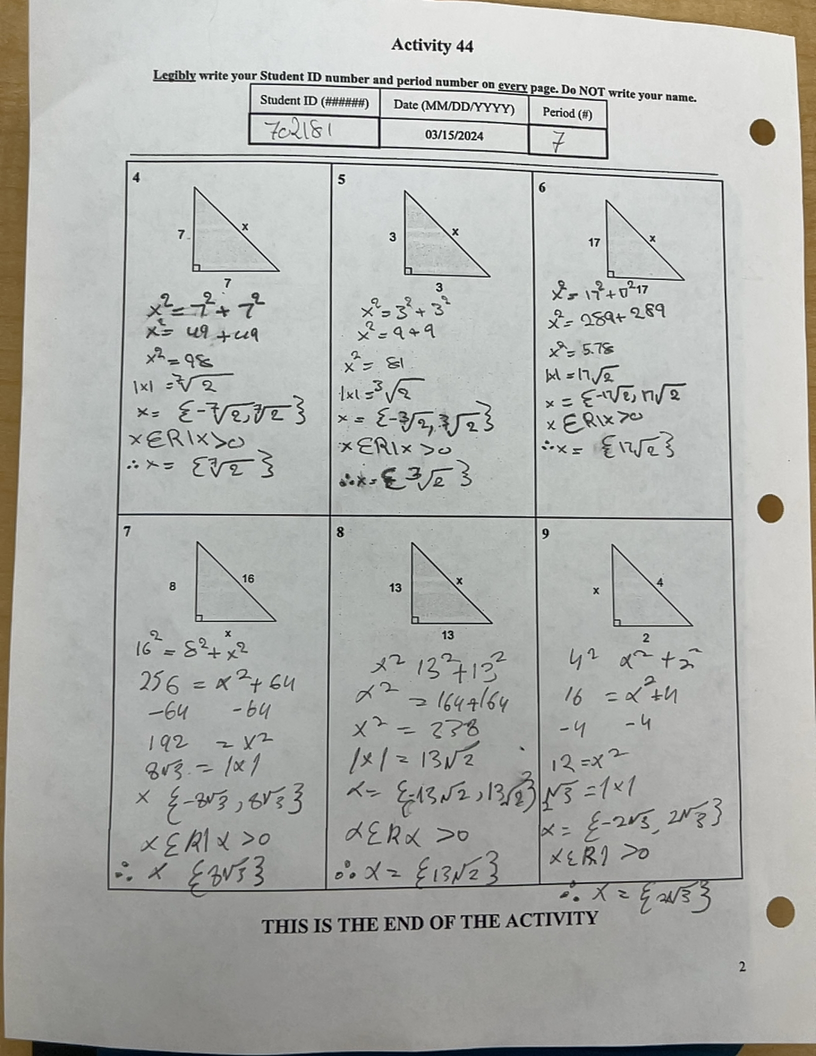 Activity 44
Legibly write your Student ID number and period number on every page. Do NOT write your name.
Student ID (######) Date (MM/DD/YYYY) Period (#)
702181 03/15/2024 7
4
7
x
7
x² = 7² + 7²
x² = 49 + 49
x² = 98
|x| = ⁷√2
x = {-⁷√2, ⁷√2}
x ∈ R | x > 0
∴ x = {⁷√2}
5
3
x
3
x² = 3² + 3²
x² = 9 + 9
x² = 81
|x| = ³√2
x = {-³√2, ³√2}
x ∈ R | x > 0
∴ x = {³√2}
6
17
x
17
x² = 17² + 17²
x² = 289 + 289
x² = 578
|x| = 17√2
x = {-17√2, 17√2
x ∈ R | x > 0
∴ x = {17√2}
7
8
16
x
16² = 8² + x²
256 = x² + 64
-64 -64
192 = x²
8√3 = |x|
x {-8√3, 8√3}
x ∈ R | x > 0
∴ x {8√3}
8
13
x
13
x² 13² + 13²
x² = 164 + 164
x² = 338
|x| = 13√2
x = {-13√2, 13√2}
x ∈ R x > 0
∴ x = {13√2}
9
x
4
2
4² x² + 2²
16 = x² + 4
-4 -4
12 = x²
2√3 = |x|
x = {-2√3, 2√3}
x ∈ R | > 0
∴ x = {2√3}
THIS IS THE END OF THE ACTIVITY
2